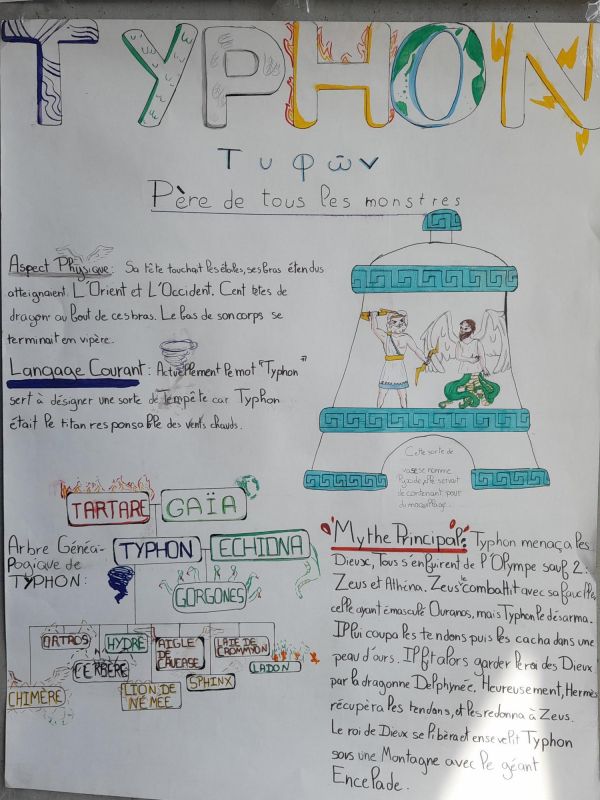 TYPHON
Τυφῶν
Père de tous les monstres
Aspect Physique: Sa tête touchait les étoiles, ses bras étendus
atteignaient L'Orient et L'Occident. Cent têtes de
dragon au bout de ces bras. Le bas de son corps se
terminait en vipère.
Langage Courant: Actuellement le mot "Typhon"
sert à désigner une sorte de Tempête car Typhon
était le titan responsable des vents chauds.
Cette sorte de
vase se nomme
servait
de contenant pour
du maquillage.
TARTARE
GAÏA
Arbre Généa-
logique de
TYPHON:
TYPHON
ECHIDNA
GORGONES
ORTROS
HYDRE
AIGLE
DE
CAUCASE
LAIE DE
CROMMYON
CERBÈRE
LADON
CHIMÈRE
LION DE
NÉMÉE
SPHINX
Mythe Principal: Typhon menaça les
Dieux, Tous s'enfuirent de l'Olympe sauf 2.
Zeus et Athéna. Zeus le combattit avec sa faucille,
celle ayant émasculé Ouranos, mais Typhon le désarma.
Il lui coupa les tendons puis les cacha dans une
peau d'ours. Il fit alors garder le roi des Dieux
par la dragonne Delphynée. Heureusement, Hermès
récupéra les tendons, et les redonna à Zeus.
Le roi de Dieux se libéra et ensevelit Typhon
sous une Montagne avec le géant
Encelade.